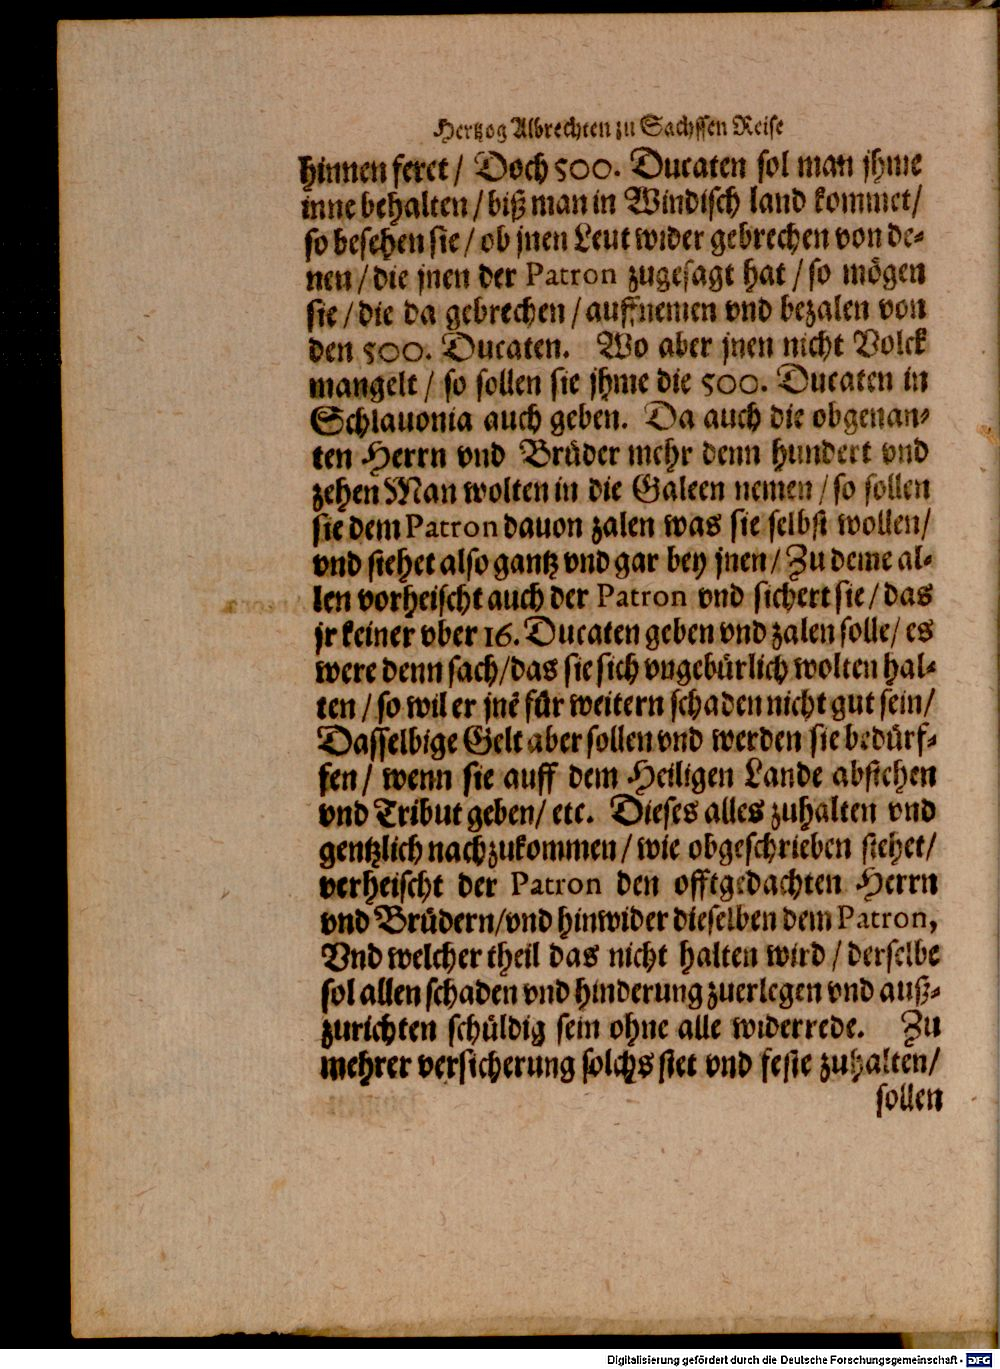 Hertzog Albrechten zu Sachssen Reise
hinnen feret / Doch 500. Ducaten sol man jhme
inne behalten / biß man in Windisch land kommet /
so besehen sie / ob jnen Leut wider gebrechen von de-
nen / die jnen der Patron zugesagt hat / so mögen
sie / die da gebrechen / auffnemen vnd bezalen von
den 500. Ducaten. Wo aber jnen nicht Volck
mangelt / so sollen sie jhme die 500. Ducaten in
Schlauonia auch geben. Da auch die obgenan-
ten Herrn vnd Brüder mehr denn hundert vnd
zehen Man wolten in die Galeen nemen / so sollen
sie dem Patron dauon zalen was sie selbst wollen /
vnd stehet also gantz vnd gar bey jnen / Zu deme al-
len vorheischt auch der Patron vnd sichert sie / das
jr keiner vber 16. Ducaten geben vnd zalen solle / es
were denn sach / das sie sich vngebürlich wolten hal-
ten / so wil er jnē für weitern schaden nicht gut sein /
Dasselbige Gelt aber sollen vnd werden sie bedürf-
fen / wenn sie auff dem Heiligen Lande abstehen
vnd Tribut geben / etc. Dieses alles zuhalten vnd
gentzlich nachzukommen / wie obgeschrieben stehet /
verheischt der Patron den offtgedachten Herrn
vnd Brüdern / vnd hinwider dieselben dem Patron,
Vnd welcher theil das nicht halten wird / derselbe
sol allen schaden vnd hinderung zuerlegen vnd auß-
zurichten schüldig sein ohne alle widerrede. Zu
mehrer versicherung solchs stet vnd feste zuhalten /
sollen
Digitalisierung gefördert durch die Deutsche Forschungsgemeinschaft - DFG